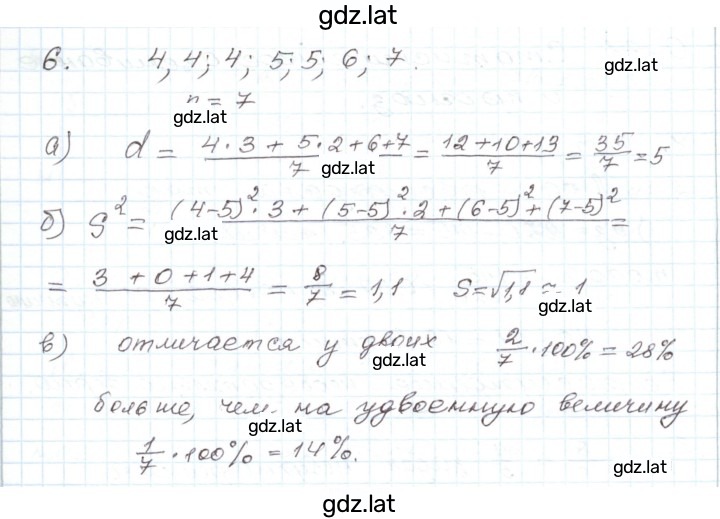 gdz.lat
6. 4, 4; 4; 5; 5; 6; 7.
gdz.lat
n = 7
gdz.lat
а) d = (4·3 + 5·2 + 6 + 7)/7 = (12 + 10 + 13)/7 = 35/7 = 5
gdz.lat
б) S² = ((4-5)²·3 + (5-5)²·2 + (6-5)² + (7-5)²)/7 =
gdz.lat
= (3 + 0 + 1 + 4)/7 = 8/7 = 1,1 S = √1,1 ≈ 1
gdz.lat
в) отличается у двоих 2/7 · 100% = 28%
gdz.lat
больше, чем на удвоенную величину
gdz.lat
1/7 · 100% = 14%.
gdz.lat
gdz.lat